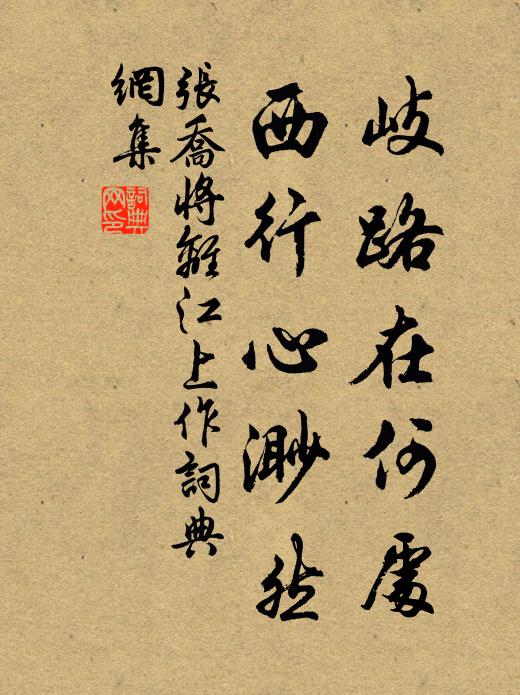 岐路在何處
西行心渺然
張喬將離江上作詞典
網集
詞典
网印